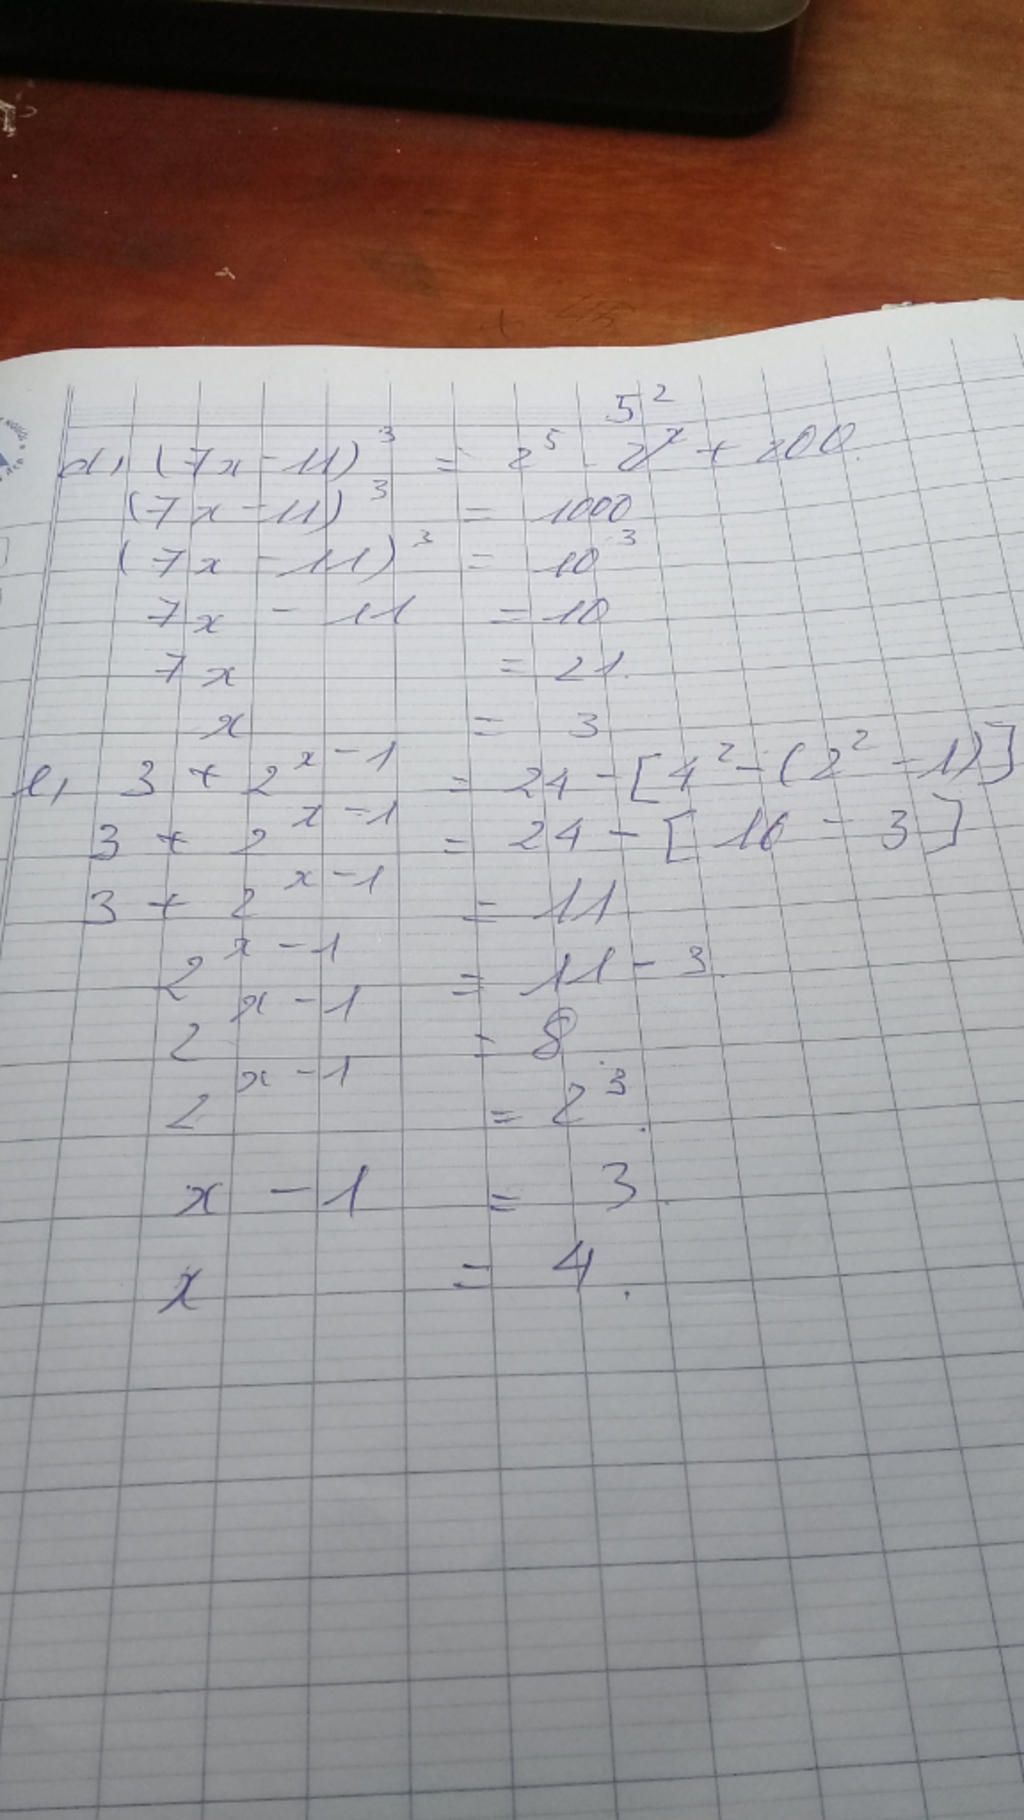 5²
d, (7x - 11)³ = 2⁵ . 2² + 200.
(7x - 11)³ = 1000
(7x - 11)³ = 10³
7x - 11 = 10
7x = 21.
x = 3
e, 3 + 2ˣ⁻¹ = 24 - [4² - (2² - 1)]
3 + 2ˣ⁻¹ = 24 - [16 - 3]
3 + 2ˣ⁻¹ = 11
2ˣ⁻¹ = 11 - 3.
2ˣ⁻¹ = 8
2ˣ⁻¹ = 2³.
x - 1 = 3.
x = 4.